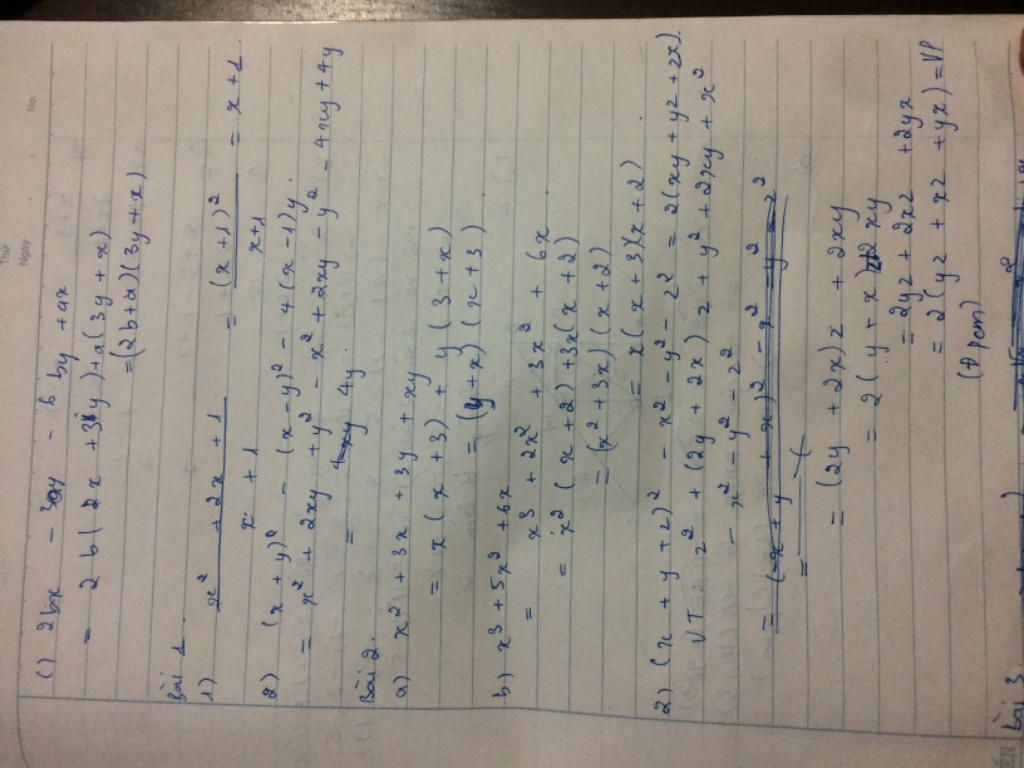 Thứ
Ngày
No.
c) 2bx - 3ay - 6by + ax
= 2b(2x + 3y) + a(3y + x)
= (2b+a)(3y+x)
Bài 1
1) (x² + 2x + 1)/(x + 1) = (x+1)²/(x+1) = x+1
2) (x+y)² - (x-y)² - 4(x-1)y
= x² + 2xy + y² - x² + 2xy - y² - 4xy + 4y
= 4y
Bài 2.
a) x² + 3x + 3y + xy
= x(x+3) + y(3+x)
= (y+x)(x+3)
b) x³ + 5x² + 6x
= x³ + 2x² + 3x² + 6x
= x²(x+2) + 3x(x+2)
= (x² + 3x)(x+2)
= x(x+3)(x+2)
2) (x+y+z)² - x² - y² - z² = 2(xy + yz + zx)
VT: z² + (2y + 2x)z + y² + 2xy + x²
- x² - y² - z²
= (2y + 2x)z + 2xy
= 2(y+x)z + 2xy
= 2yz + 2xz + 2yx
= 2(yz + xz + yx) = VP
(đpcm)
bài 3